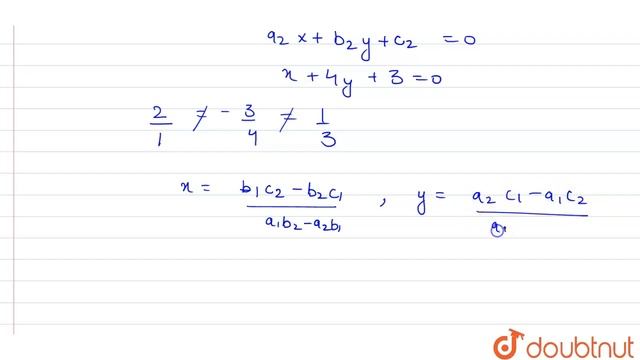 a₂x + b₂y + c₂ = 0
x + 4y + 3 = 0
2/1 ≠ -3/4 ≠ 1/3
x = (b₁c₂ - b₂c₁)/(a₁b₂ - a₂b₁) , y = (a₂c₁ - a₁c₂)/a₁
doubtnut